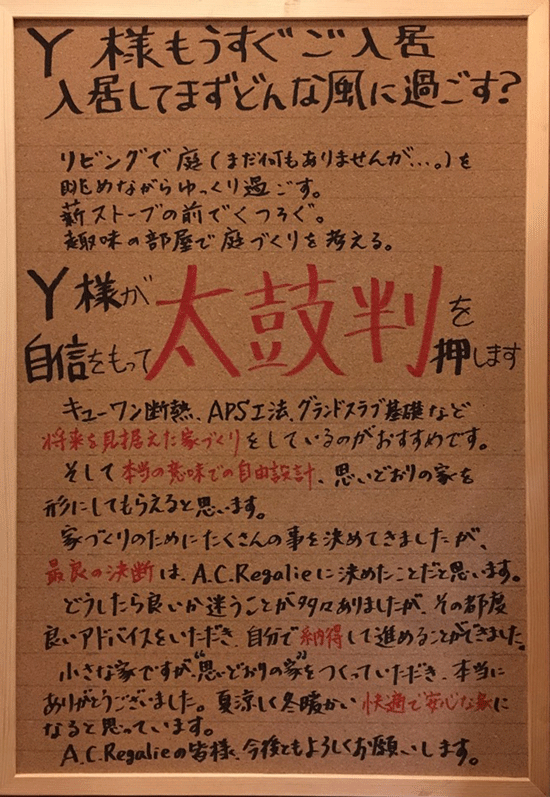 Y様もうすぐご入居
入居してまずどんな風に過ごす?
リビングで庭(まだ何もありませんが…。)を
眺めながらゆっくり過ごす。
薪ストーブの前でくつろぐ。
趣味の部屋で庭づくりを考える。
Y様が
自信をもって太鼓判を押します
キューワン断熱、APS工法、グランドスラブ基礎など
将来を見据えた家づくりをしているのがおすすめです。
そして本当の意味での自由設計、思いどおりの家を
形にしてもらえると思います。
家づくりのためにたくさんの事を決めてきましたが、
最良の決断は、A.C.Regalieに決めたことだと思います。
どうしたら良いか迷うことが多々ありましたが、その都度
良いアドバイスをいただき、自分で納得して進めることができました。
小さな家ですが、“思いどおりの家”をつくっていただき、本当に
ありがとうございました。夏涼しく冬暖かい快適で安心な家に
なると思っています。
A.C.Regalieの皆様、今後ともよろしくお願いします。